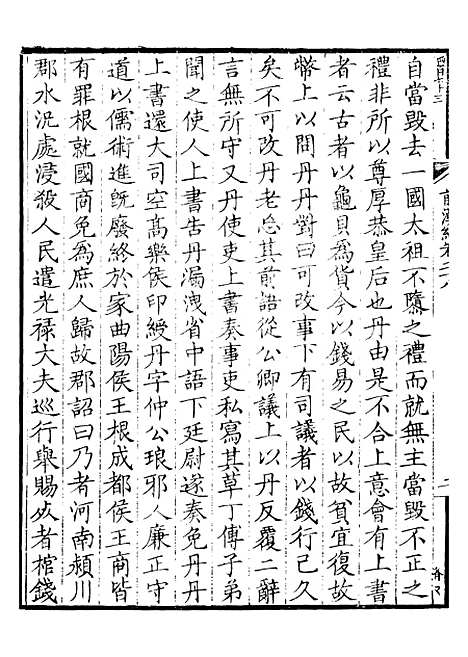 自當毀去一國太祖不隳之禮而就無主當毀不正之
禮非所以尊厚恭皇后也丹由是不合上意會有上書
者云古者以龜貝為貨今以錢易之民以故貧宜復故
幣上以問丹丹對曰可改事下有司議者以錢行已久
矣不可改丹老忘其前語從公卿議上以丹反覆二辭
言無所守又丹使吏上書奏事吏私寫其草丁傅子弟
聞之使人上書告丹漏洩省中語下廷尉遂奏免丹丹
上書還大司空高樂侯印綬丹字仲公琅邪人廉正守
道以儒術進旣廢終於家曲陽侯王根成都侯王商皆
有罪根就國商免為庶人歸故郡詔曰乃者河南潁川
郡水況處浸殺人民遣光祿大夫巡行舉賜死者棺錢
前漢紀卷二十八
二